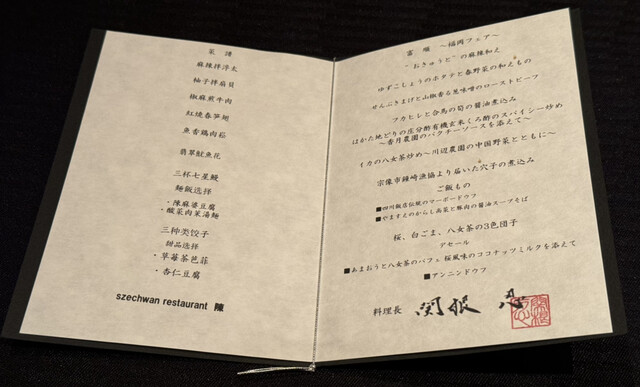 菜譜
麻辣拌浮太
柚子拌扇貝
椒麻煎牛肉
紅燒春笋翅
魚香鶏肉菘
翡翠魷魚花
三杯七星鰻
麵飯选择
・陳麻婆豆腐
・酸菜肉菜湯麺
三种类饺子
甜品选择
・草莓茶芭菲
・杏仁豆腐
szechwan restaurant 陳
富 順 〜福岡フェア〜
"おきゅうと"の麻辣和え
ゆずこしょうのホタテと春野菜の和えもの
せんぶきまげと山椒香る黒味噌のローストビーフ
フカヒレと合馬の筍の醤油煮込み
はかた地どりの庄分酢有機玄米くろ酢のスパイシー炒め
〜香月農園のパクチーソースを添えて〜
イカの八女茶炒め〜川辺農園の中国野菜とともに〜
宗像市鐘崎漁協より届いた穴子の煮込み
ご飯もの
■四川飯店伝統のマーボードウフ
■やますえのからし高菜と豚肉の醤油スープそば
桜、白ごま、八女茶の3色団子
デセール
■あまおうと八女茶のパフェ 桜風味のココナッツミルクを添えて
■アンニンドウフ
料理長 関根